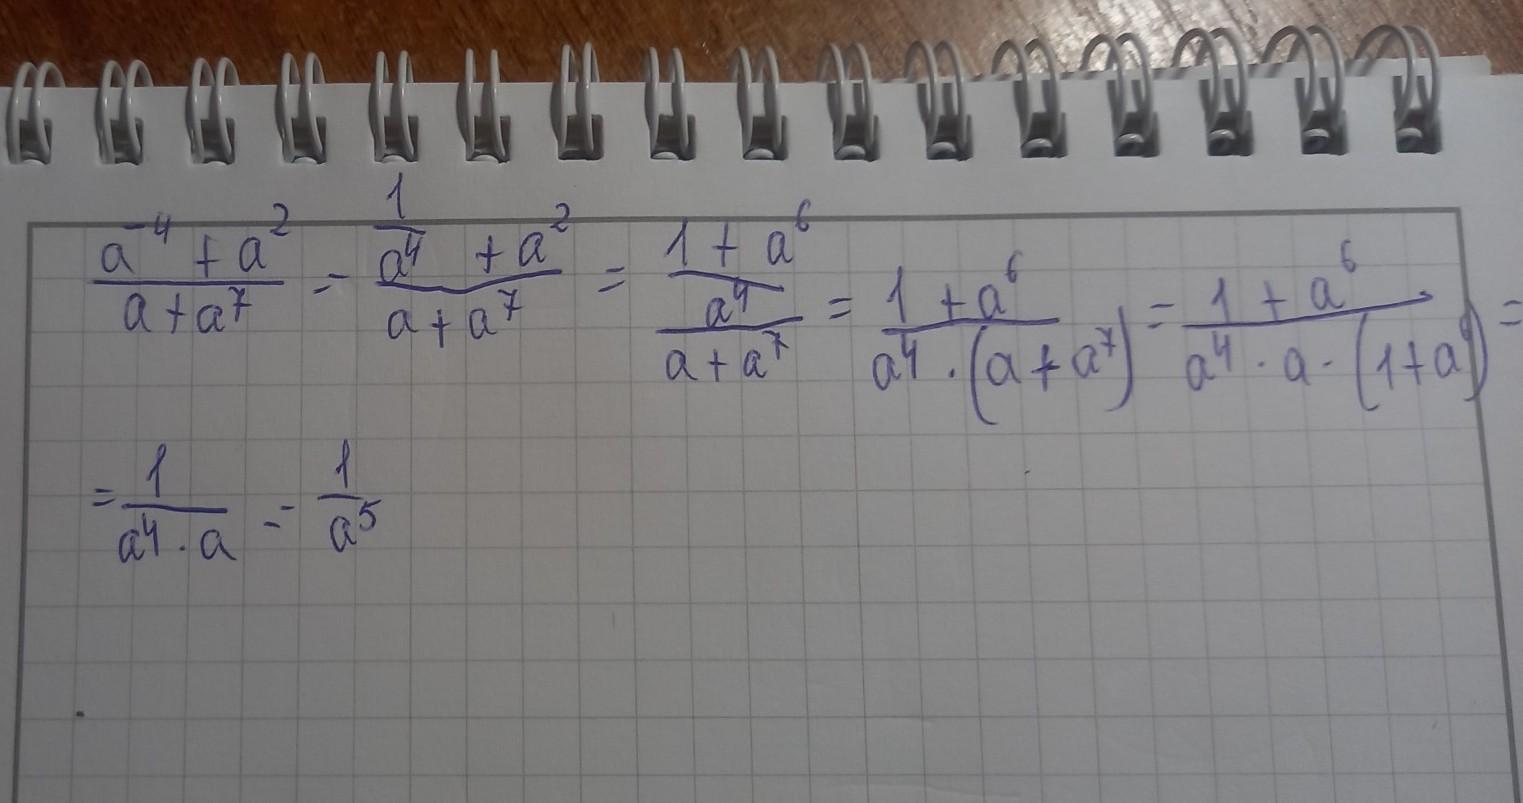 (a^{-4} + a^2)/(a + a^7) = (1/a^4 + a^2)/(a + a^7) = ((1 + a^6)/a^4)/(a + a^7) = (1 + a^6)/(a^4 · (a + a^7)) = (1 + a^6)/(a^4 · a · (1 + a^6)) =
= 1/(a^4 · a) = 1/a^5